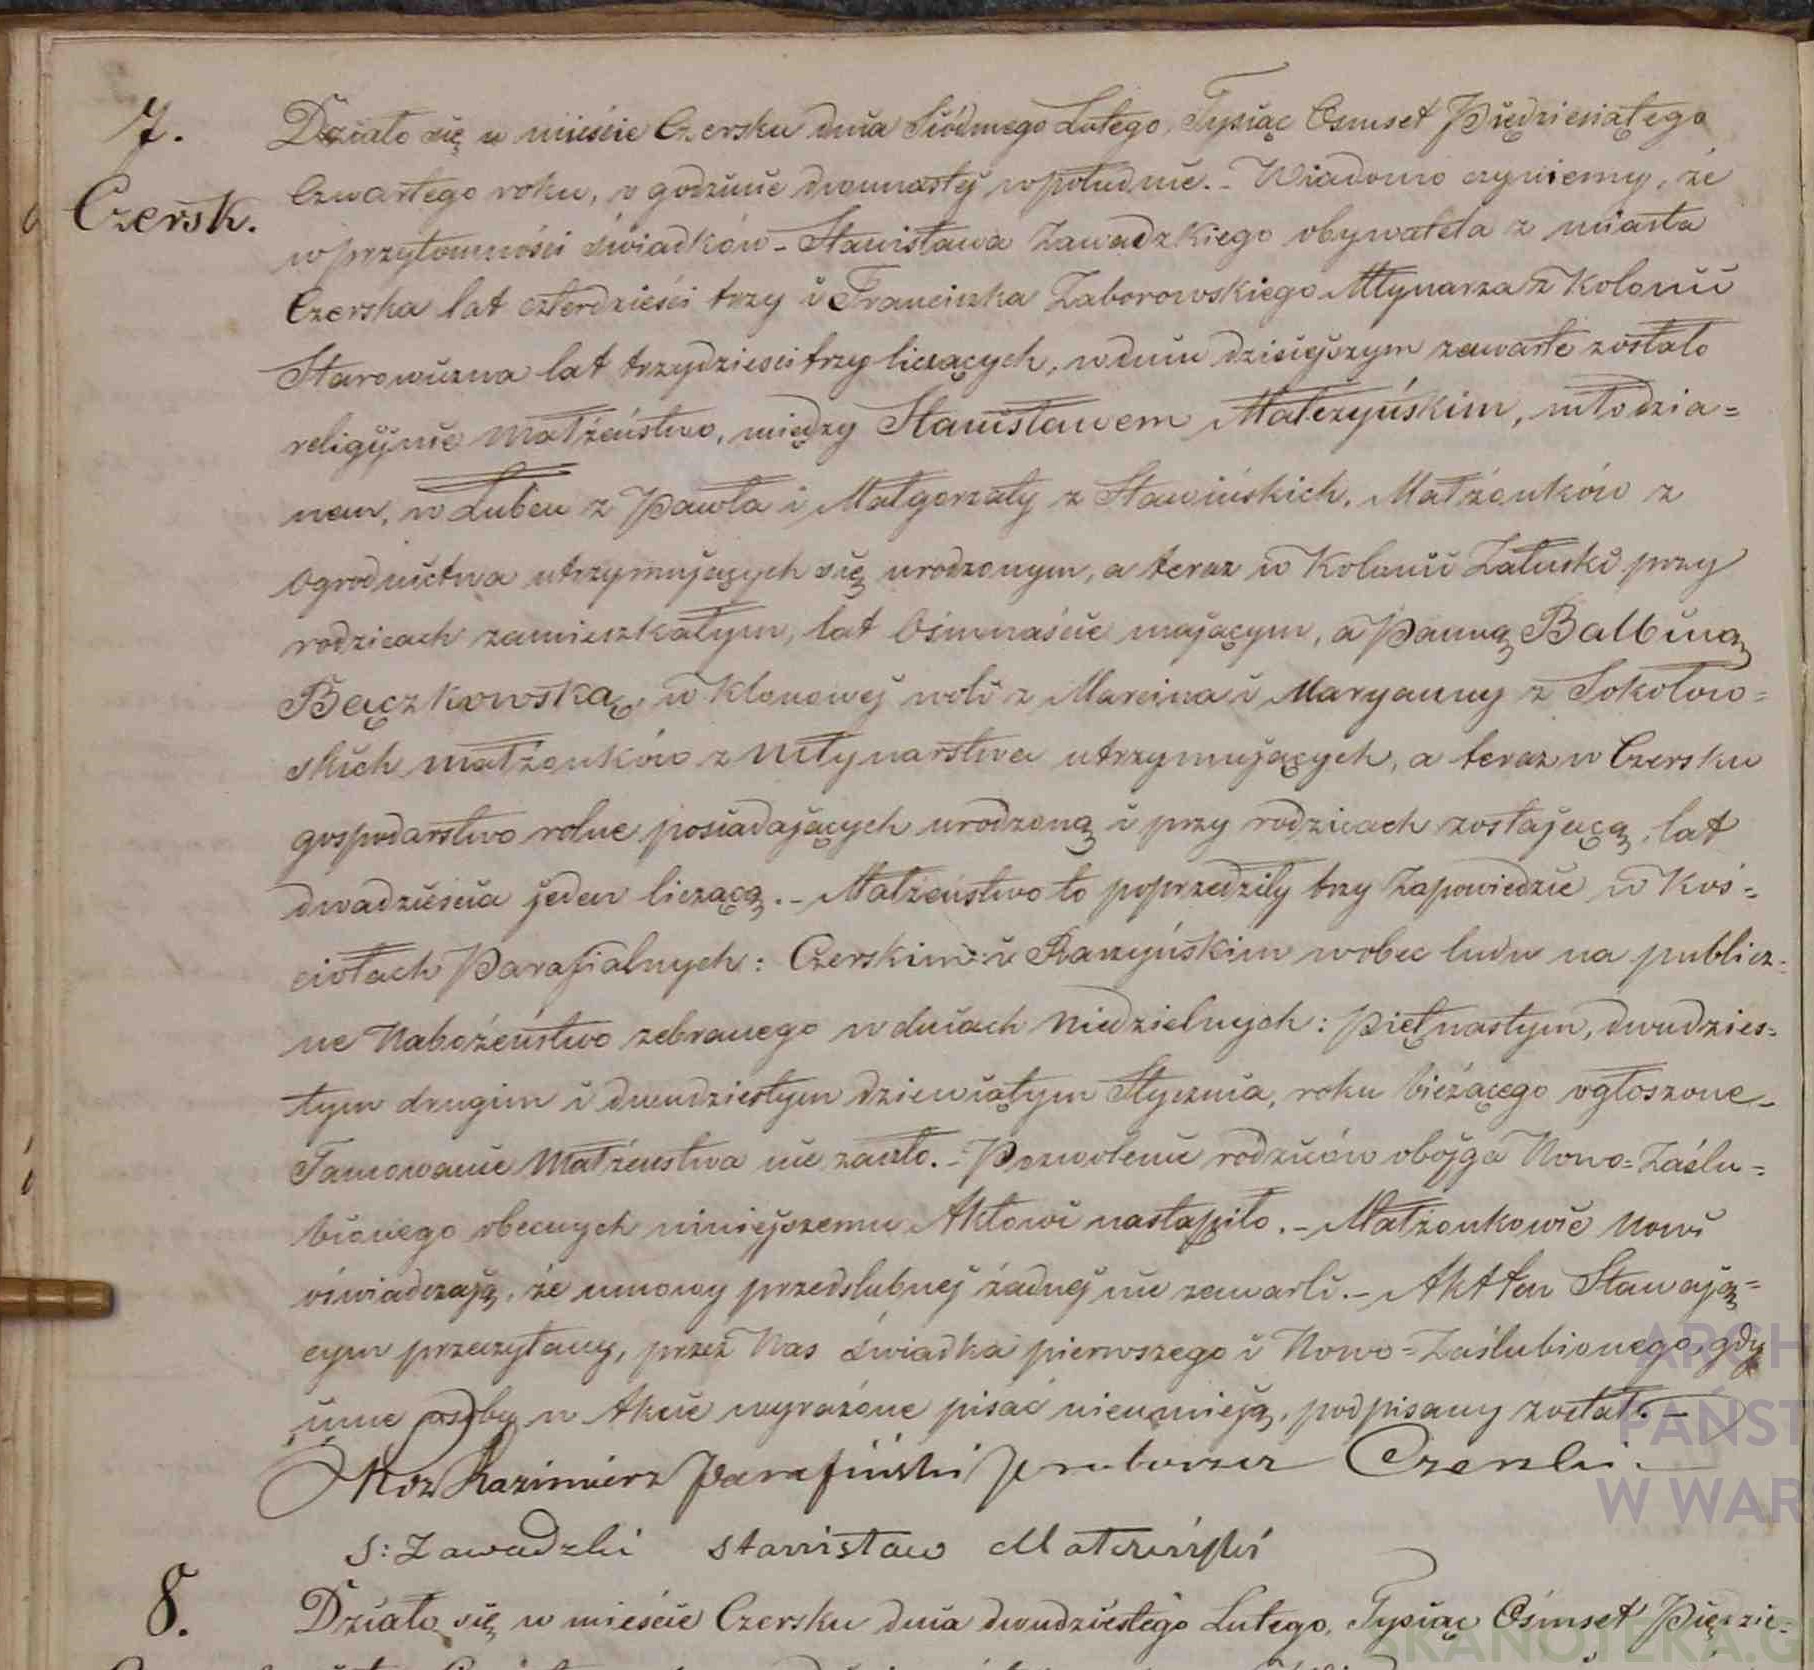 7.
Czersk.
Działo się w mieście Czersku dnia Siódmego Lutego, Tysiąc Osmset Piędziesiątego
Czwartego roku, o godzinie dwunastej w południe. - Wiadomo czyniemy, że
w przytomności świadków - Stanisława Zawadzkiego obywatela z miasta
Czerska lat czterdzieści trzy i Franciszka Zaborowskiego Młynarza z Kolonii
Starowizna lat trzydzieści trzy liczących, w dniu dzisiejszym zawarte zostało
religijnie Małżeństwo, między Stanisławem Małczyńskim, młodzia=
nem, w Lubču z Pawła i Małgorzaty z Sławińskich, Małżonków z
Ogrodnictwa utrzymujących się urodzonym, a teraz w Kolonii Załuski przy
rodzicach zamieszkałym, lat Ośmnaście mającym, a Panną Balbiną
Bączkowską, w Klonowej woli z Marcina i Maryanny z Sokołow=
skich małżonków z Młynarstwa utrzymujących, a teraz w Czersku
gospodarstwo rolne posiadających urodzoną i przy rodzicach zostającą, lat
dwadzieścia jeden liczącą. - Małżeństwo to poprzedziły trzy Zapowiedzie w Koś=
ciołach Parafialnych: Czerskim i Raszyńskim wobec ludu na publicz=
ne Nabożeństwo zebranego w dniach Niedzielnych: Piętnastym, dwudzies=
tym drugim i dwudziestym dziewiątym Stycznia, roku bieżącego ogłoszone -
Tamowanie Małżeństwa nie zaszło. - Pozwolenie rodziców obojga Nowo-Zaślu=
bionego obecnych niniejszemu Aktowi nastąpiło. - Małżonkowie Nowi
oświadczają, że umowy przedslubnej żadnej nie zawarli. - Akt ten Stawają=
cym przeczytany, przez Nas świadka pierwszego i Nowo=Zaślubionego, gdy
inne osoby w Akcie wyrażone pisać nieumieją, podpisany został. -
Kazimierz Parafiński Proboszcz Czerski.
S: Zawadzki Stanisław Małczyński
8.
Działo się w mieście Czersku dnia dwudziestego Lutego, Tysiąc Ośmset Pięzie=
ARCH
PAŃST
W WAR
SKANOTEKA.G